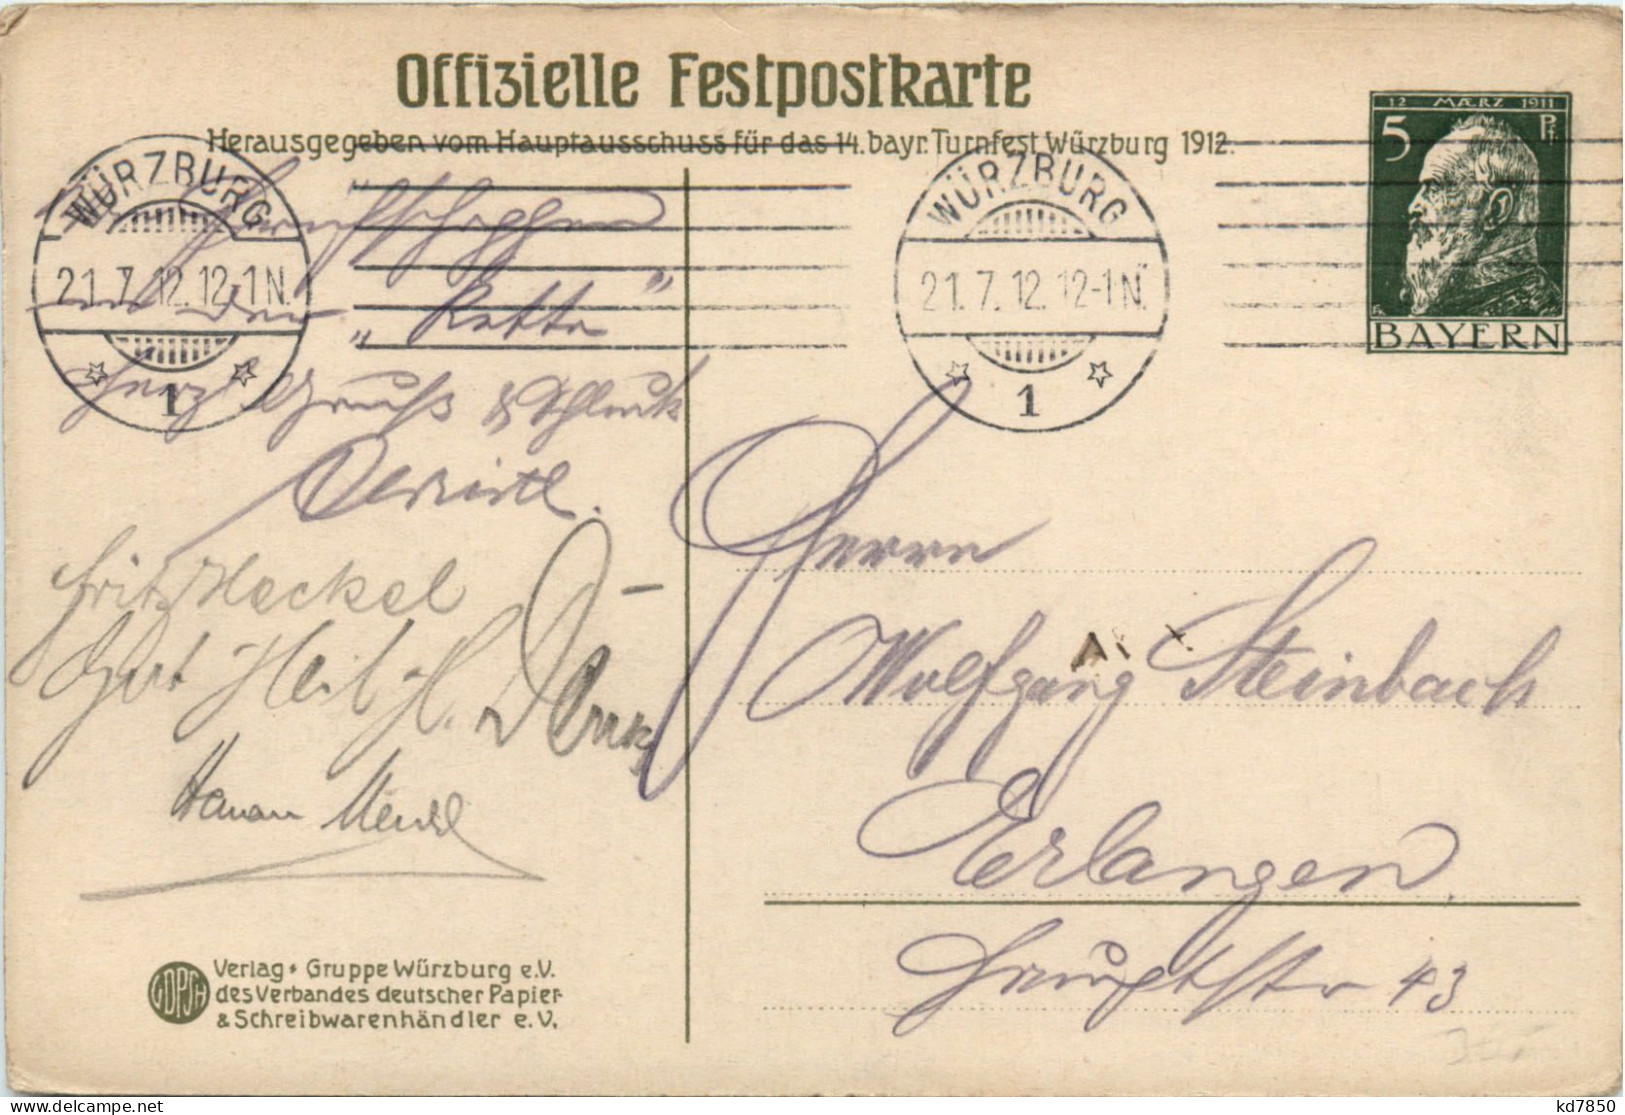 Offizielle Festpostkarte
Herausgegeben vom Hauptausschuss für das 14. bayr. Turnfest Würzburg 1912.
12 MÆRZ 1911
5 Pf.
BAYERN
WÜRZBURG
21.7.12.12-1N.
1
WÜRZBURG
21.7.12.12-1N.
1
Frühschoppen
in der „Kette"
Herzl Gruß & Schluck
Fritz Heckel
Herrn
Wolfgang Steinbach
Erlangen
Hauptstr 43
Verlag Gruppe Würzburg e.V.
des Verbandes deutscher Papier-
& Schreibwarenhändler e.V.
kd7850